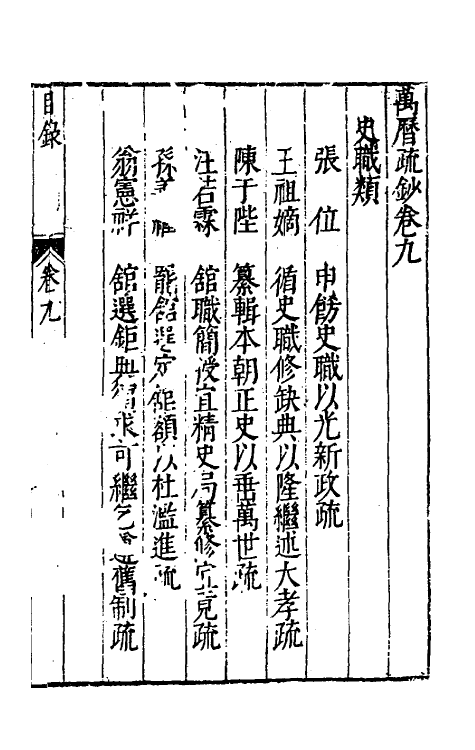 萬曆疏鈔卷九
史職類
張位 申飭史職以光新政疏
王祖嫡 循史職修缺典以隆繼述大孝疏
陳于陛 纂輯本朝正史以垂萬世疏
汪若霖 舘職簡授宜精史局纂修宜竟疏
孫 罷舘選定舘額以杜濫進疏
翁憲祥 舘選鉅典 求可繼乞 舊制疏
目錄 卷九